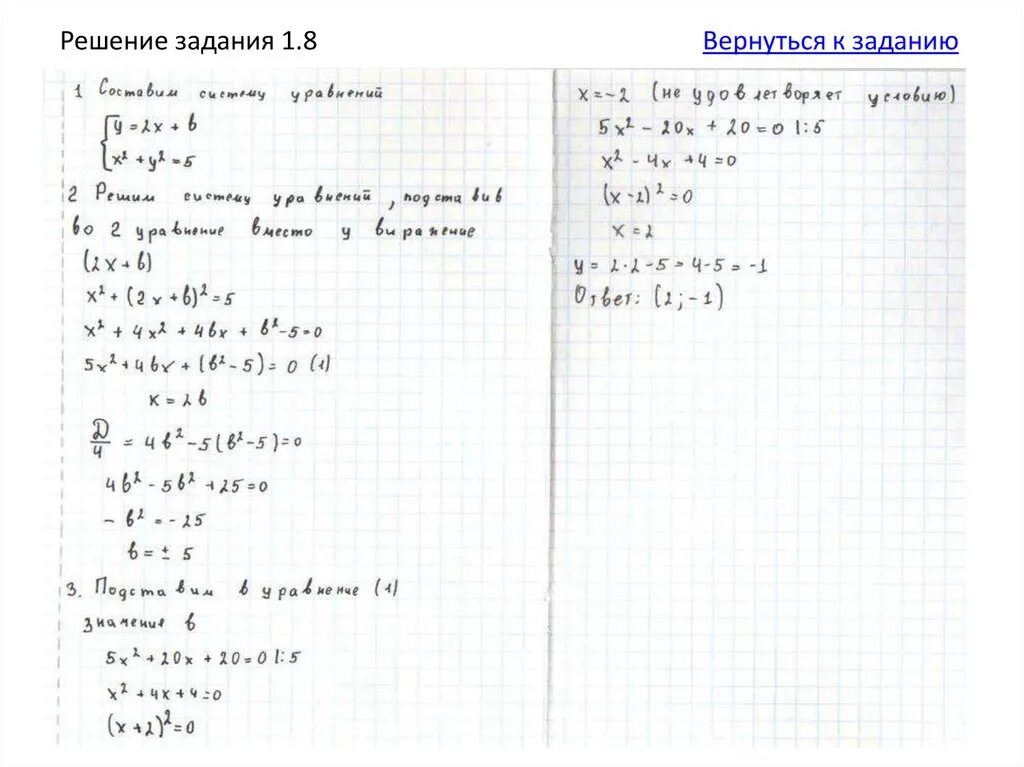 Решение задания 1.8
Вернуться к заданию
1 Составим систему уравнений
y = 2x + b
x² + y² = 5
2 Решим систему уравнений, подставив
во 2 уравнение вместо y выражение
(2x + b)
x² + (2x + b)² = 5
x² + 4x² + 4bx + b² - 5 = 0
5x² + 4bx + (b² - 5) = 0 (1)
к = 2b
D/4 = 4b² - 5(b² - 5) = 0
4b² - 5b² + 25 = 0
- b² = - 25
b = ± 5
3. Подставим в уравнение (1)
значение b
5x² + 20x + 20 = 0 |:5
x² + 4x + 4 = 0
(x + 2)² = 0
x = -2 (не удовлетворяет условию)
5x² - 20x + 20 = 0 |:5
x² - 4x + 4 = 0
(x - 2)² = 0
x = 2
y = 2·2 - 5 = 4 - 5 = -1
Ответ: (2; -1)